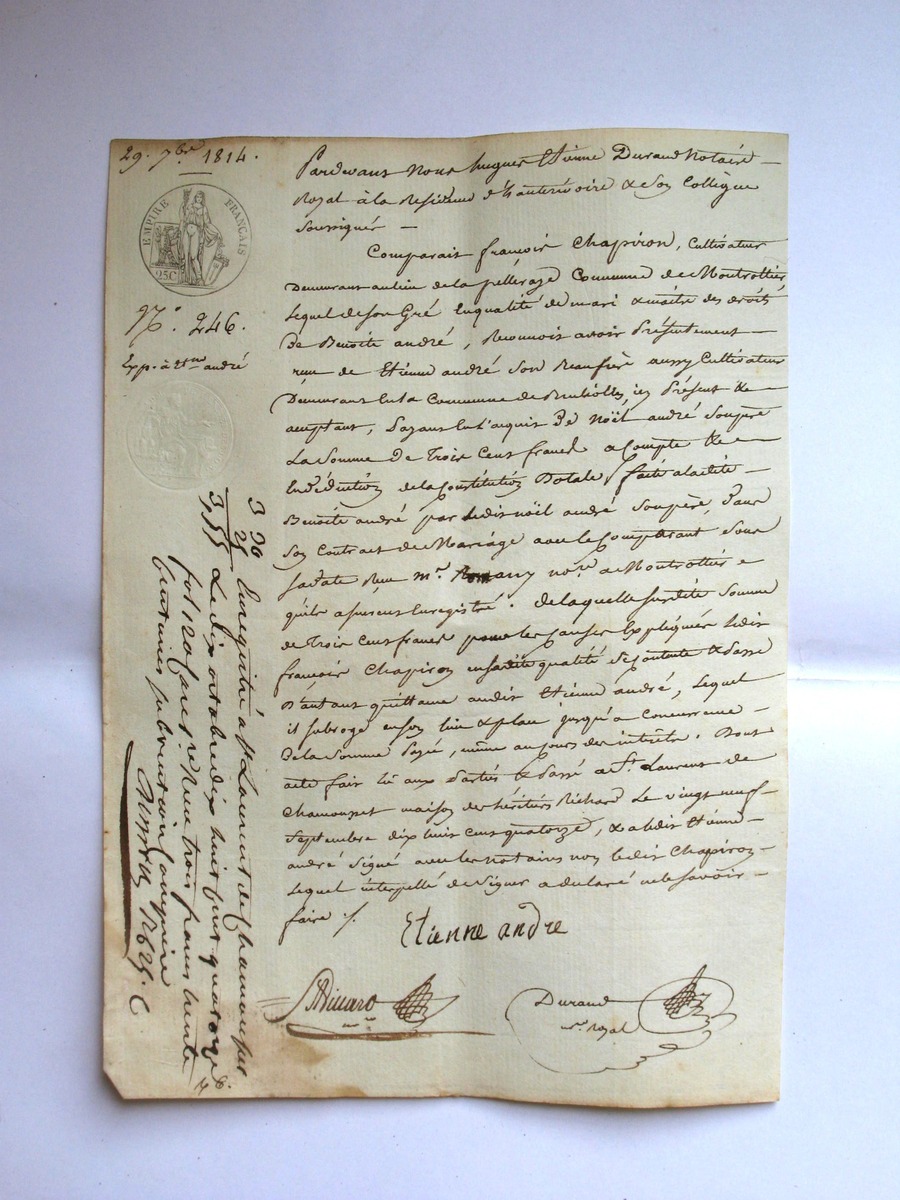 29. 7bre. 1814.
EMPIRE FRANÇAIS
25C
N°. 246.
Exp. à Etne andré
Pardevant Nous hugues Etienne Durand Notaire
Royal à la Résidence d'hauterivoire & son Collègue
Soussignés
Comparait françois Chapiron, Cultivateur
Demeurant au lieu de la pelleraze Commune de Montrottier
Lequel de son Gré En qualité de mari & maitre des droits
de Benoite andré, Reconnoit avoir Présentement
reçu de Etienne andré son Beaufrère aussy Cultivateur
Demeurant En la Commune de icy Présent &
acceptant, Payant En l'acquit de Noël andré Son père
La Somme de Trois Cent francs a Compte &
En déduction de la Constitution Dotale faite a ladite
Benoite andré par ledit noël andré son père, dans
son Contrat de Mariage avec le Comparant Sous
sa date Reçu mr. nore. a Montrottier
qu'ils assurent Enregistré. de laquelle susdite Somme
de Trois Cent francs pour les causes Expliquées ledit
françois Chapiron en sadite qualité se contente & Passe
d'autant quittance audit Etienne andré, Lequel
il subroge en son lieu & place jusqu'a Concurrence
de la Somme Payée, même au jours des intérêts. Dont
acte fait lû aux Parties & Passé a St. Laurent de
Chamousset maison des héritiers Richard Le vingt neuf
Septembre dix huit Cent quatorze, & a ledit Etienne
andré Signé avec les notaires non ledit Chapiron
Lequel interpellé de Signer a déclaré ne le Savoir
faire ./.
Etienne andre
Durand
nre. royal
3 30
25
3,55
Enregistré a St Laurent de Chamousset
Le dix octobre dix huit cent quatorze
fol. 120 Case re. Reçu trois francs trente
centimes subvention comprise